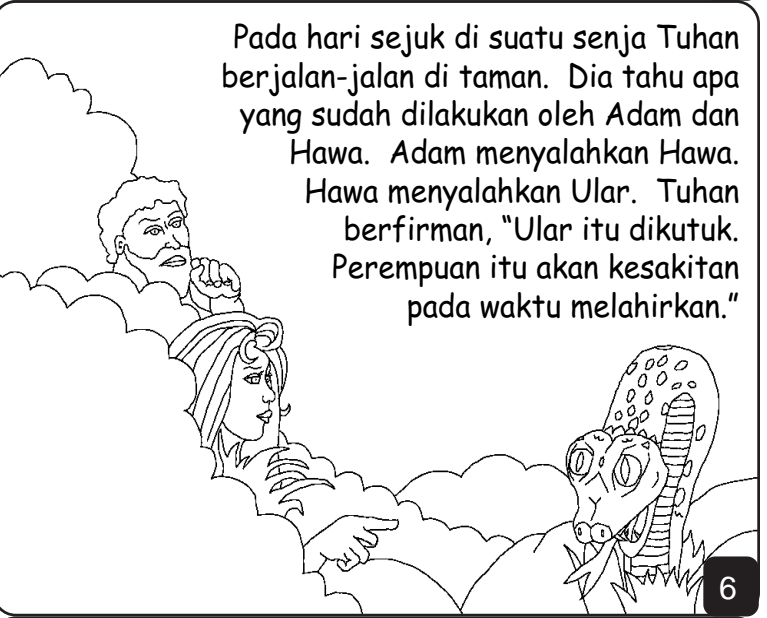 Pada hari sejuk di suatu senja Tuhan
berjalan-jalan di taman.  Dia tahu apa
yang sudah dilakukan oleh Adam dan
Hawa.  Adam menyalahkan Hawa.
Hawa menyalahkan Ular.  Tuhan
berfirman, “Ular itu dikutuk.
Perempuan itu akan kesakitan
pada waktu melahirkan.”
6